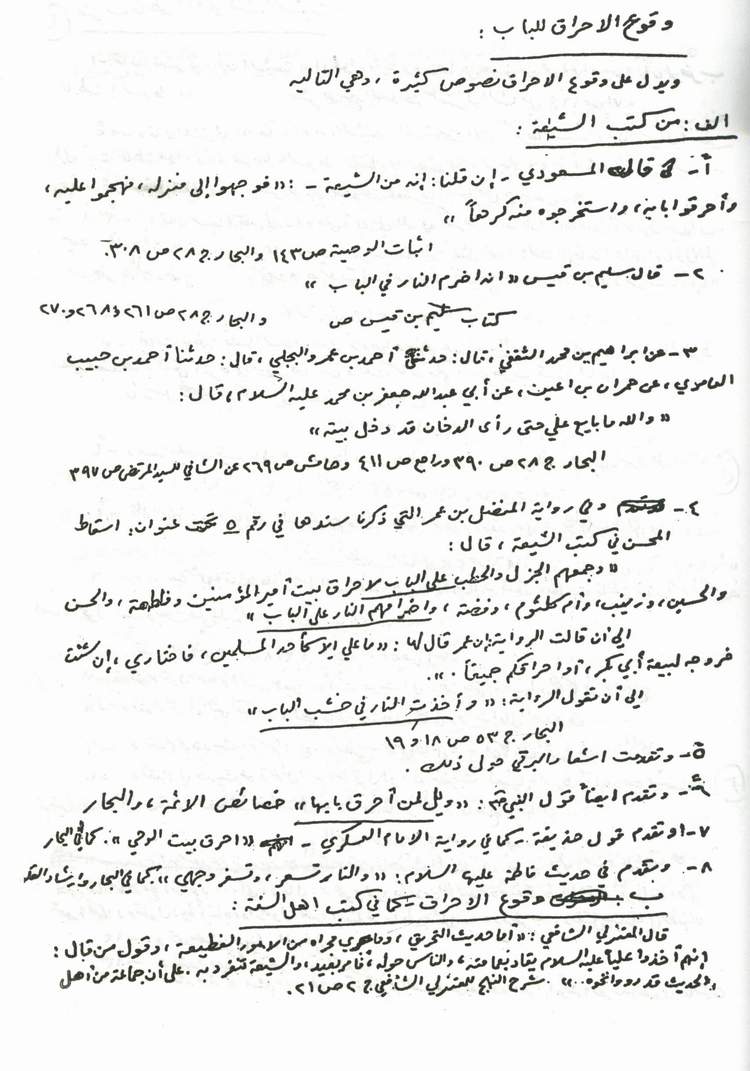 وقوع الاحراق للباب :
ويدل على وقوع الاحراق نصوص كثيرة ، وهي التالية
الف : من كتب الشيعة :
أ- قال المسعودي - إن قلنا : إنه من الشيعة - : « فوجهوا إلى منزله ، فهجموا عليه ،
وأحرقوا بابه ، واستخرجوه منه كرهاً »
اثبات الوصية ص ١٤٣ والبحار ج ٢٨ ص ٣٠٨.
٢- قال سليم بن قيس « انه اضرم النار في الباب »
كتاب سليم بن قيس ص والبحار ج ٢٨ ص ٢٦١ و ٢٦٨ و ٢٧٠
٣- عن ابراهيم بن محمد الثقفي ، قال : حدثني أحمد بن عمرو البجلي ، قال : حدثنا أحمد بن حبيب
العامري ، عن حمران بن اعين ، عن أبي عبدالله جعفر بن محمد عليه السلام ، قال :
« والله ما بايع علي حتى رأى الدخان قد دخل بيته »
البحار ج ٢٨ ص ٣٩٠ وراجع ص ٤١١ وهامش ص ٢٦٩ عن الشافي للسيد المرتضى ص ٣٩٧
٤- وفي رواية المفضل بن عمر التي ذكرنا سندها في رقم ٥ تحت عنوان : اسقاط
المحسن في كتب الشيعة ، قال :
« وجمعهم الجزل والحطب على الباب لاحراق بيت أمير المؤمنين وفاطمة ، والحسن
والحسين ، وزينب ، وأم كلثوم ، وفضة ، واضرامهم النار على الباب »
الى أن قالت الرواية : إن عمر قال لها : « ما علي إلا كأحد المسلمين ، فاختاري ، إن شئت
خروجه لبيعة أبي بكر ، أو احراقكم جميعاً . »
الى أن تقول الرواية : « وأخذت النار في خشب الباب »
البحار ج ٥٣ ص ١٨ و ١٩
٥- وتقدمت اشعار البرقي حول ذلك
٦- وتقدم ايضاً قول النبي : « ويل لمن أحرق بابها » خصائص الائمة ، والبحار
٧- وتقدم قول حذيفة - كما في رواية الامام العسكري - « احرق بيت الوحي » . كما في البحار
٨- وتقدم في حديث فاطمة عليها السلام : « والنار تسعر ، وتسفر وجهي » . كما في البحار وإرشاد القلوب
ب : وقوع الاحراق - كما في كتب اهل السنة :
قال المعتزلي الشافعي : « أما حديث التحريق ، وما جرى مجراه من الامور الفظيعة ، وقول من قال :
إنهم أخذوا علياً عليه السلام يقاد بعمامته ، والناس حوله ، فأمر بعيد ، والشيعة تنفرد به . على أن جماعة من أهل
الحديث قد رووا نحوه .. » . شرح النهج للمعتزلي الشافعي ج ٢ ص ٢١.